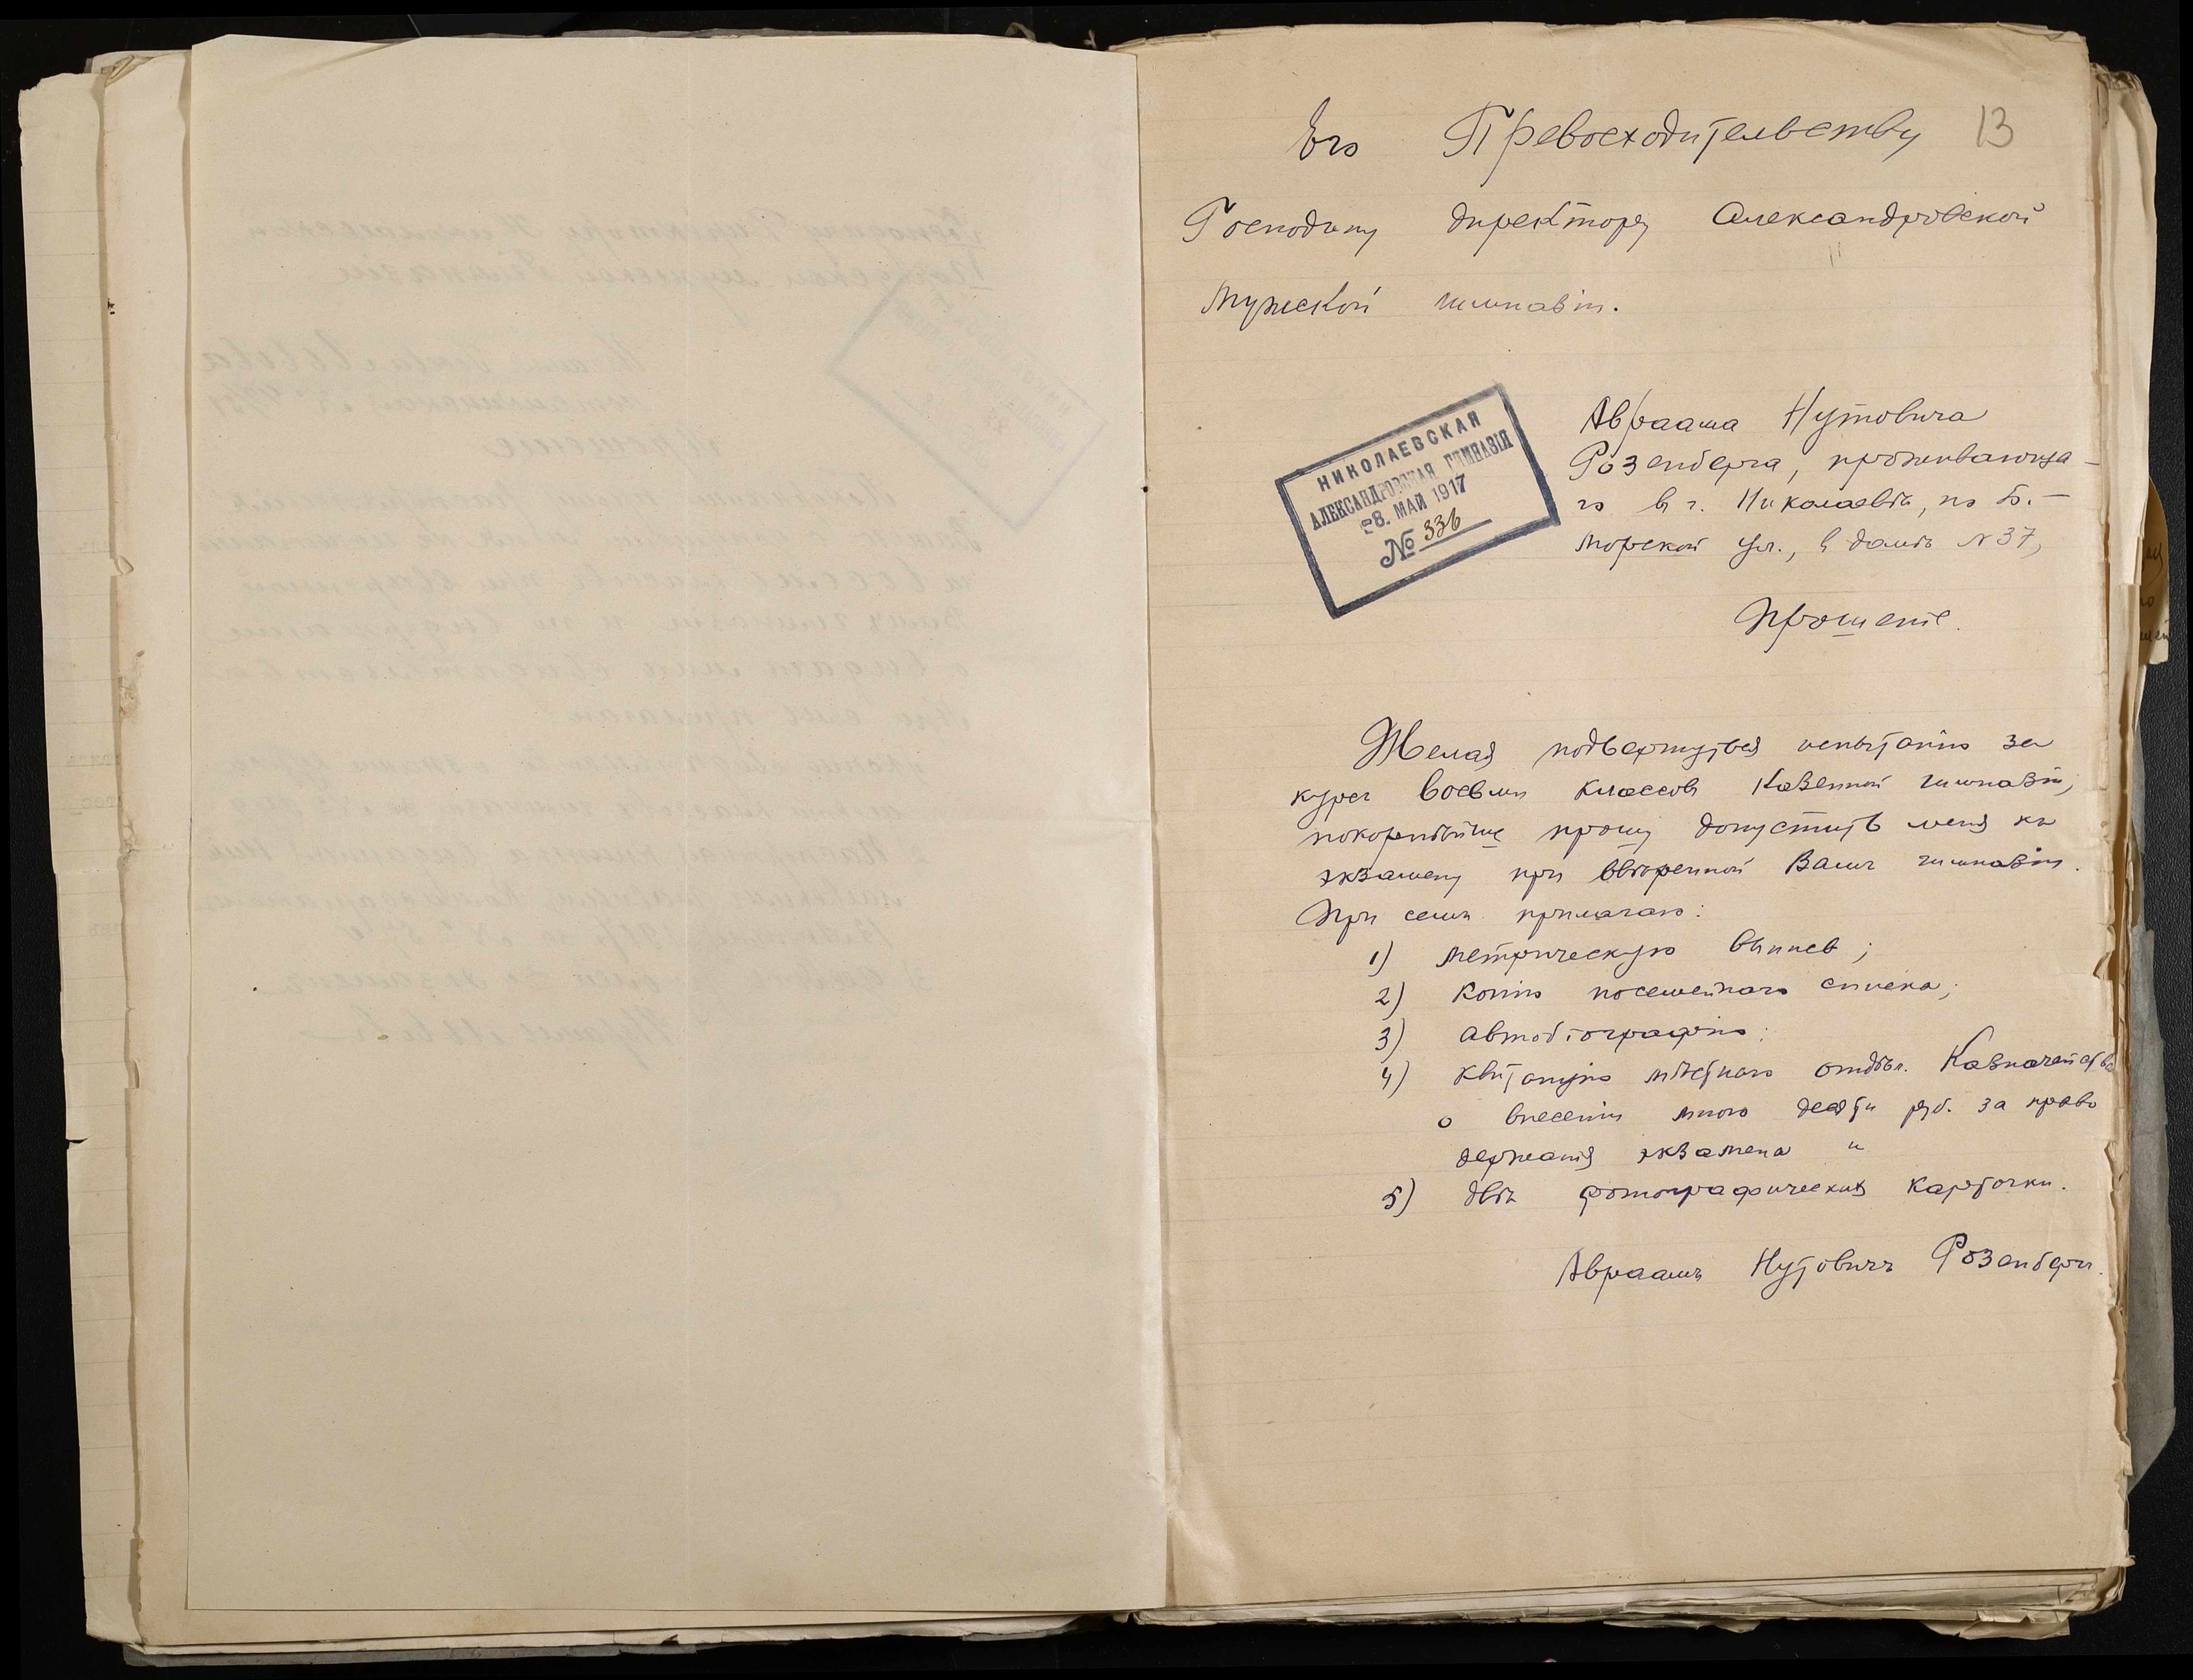 13
Его Превосходительству
Господину директору Александровской
мужской гимназіи.
НИКОЛАЕВСКАЯ
АЛЕКСАНДРОВСКАЯ ГИМНАЗІЯ
28. МАЙ 1917
№ 336
Авраама Нутовича
Розенберга, проживающа-
го в г. Николаевѣ, по Б.-
Морской ул., в домѣ № 37,
Прошеніе.
Желая подвергнуться испытанію за
курсъ восьми классовъ казенной гимназіи,
покорнѣйше прошу допустить меня къ
экзамену при ввѣренной Вамъ гимназіи.
При семъ прилагаю:
1) метрическую выпись;
2) копію посемейнаго списка;
3) автобіографію;
4) квитанцію мѣстнаго отдѣл. Казначейства
о внесеніи мною десяти руб. за право
держанія экзамена и
5) двѣ фотографическія карточки.
Авраамъ Нутовичъ Розенбергъ.